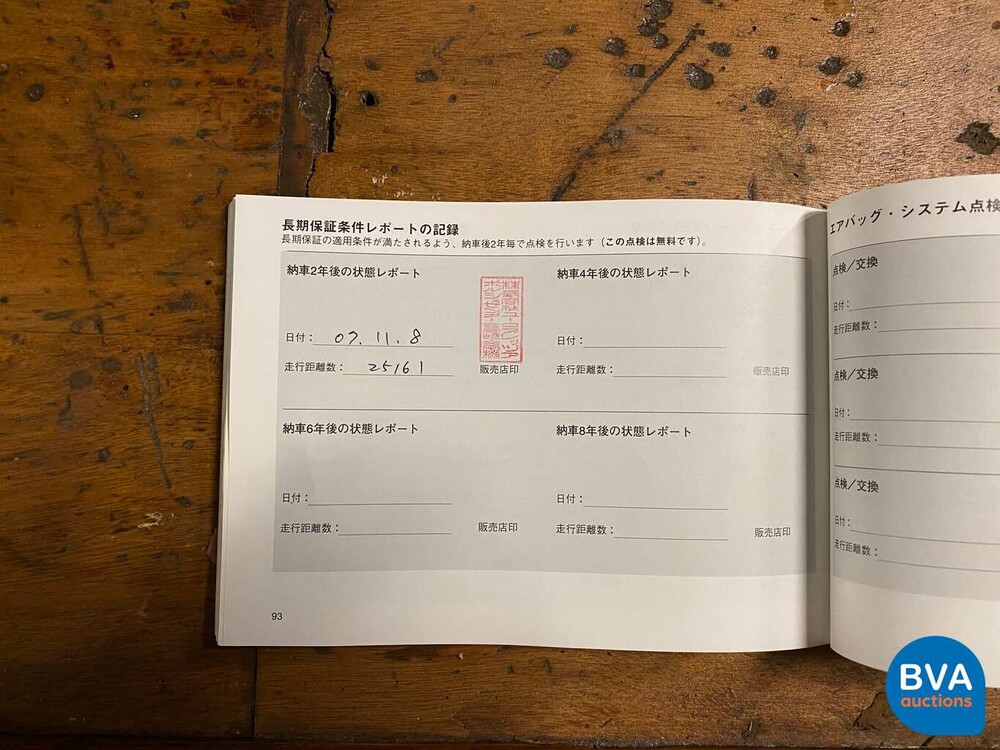 長期保証条件レポートの記録
長期保証の適用条件が満たされるよう、納車後2年毎で点検を行います（この点検は無料です）。
納車2年後の状態レポート
日付：07.11.8
走行距離数：25161
販売店印
納車4年後の状態レポート
日付：
走行距離数：
販売店印
納車6年後の状態レポート
日付：
走行距離数：
販売店印
納車8年後の状態レポート
日付：
走行距離数：
販売店印
93
エアバッグ・システム点検
点検／交換
日付：
走行距離数：
点検／交換
日付：
走行距離数：
点検／交換
日付：
走行距離数：
BVA
auctions